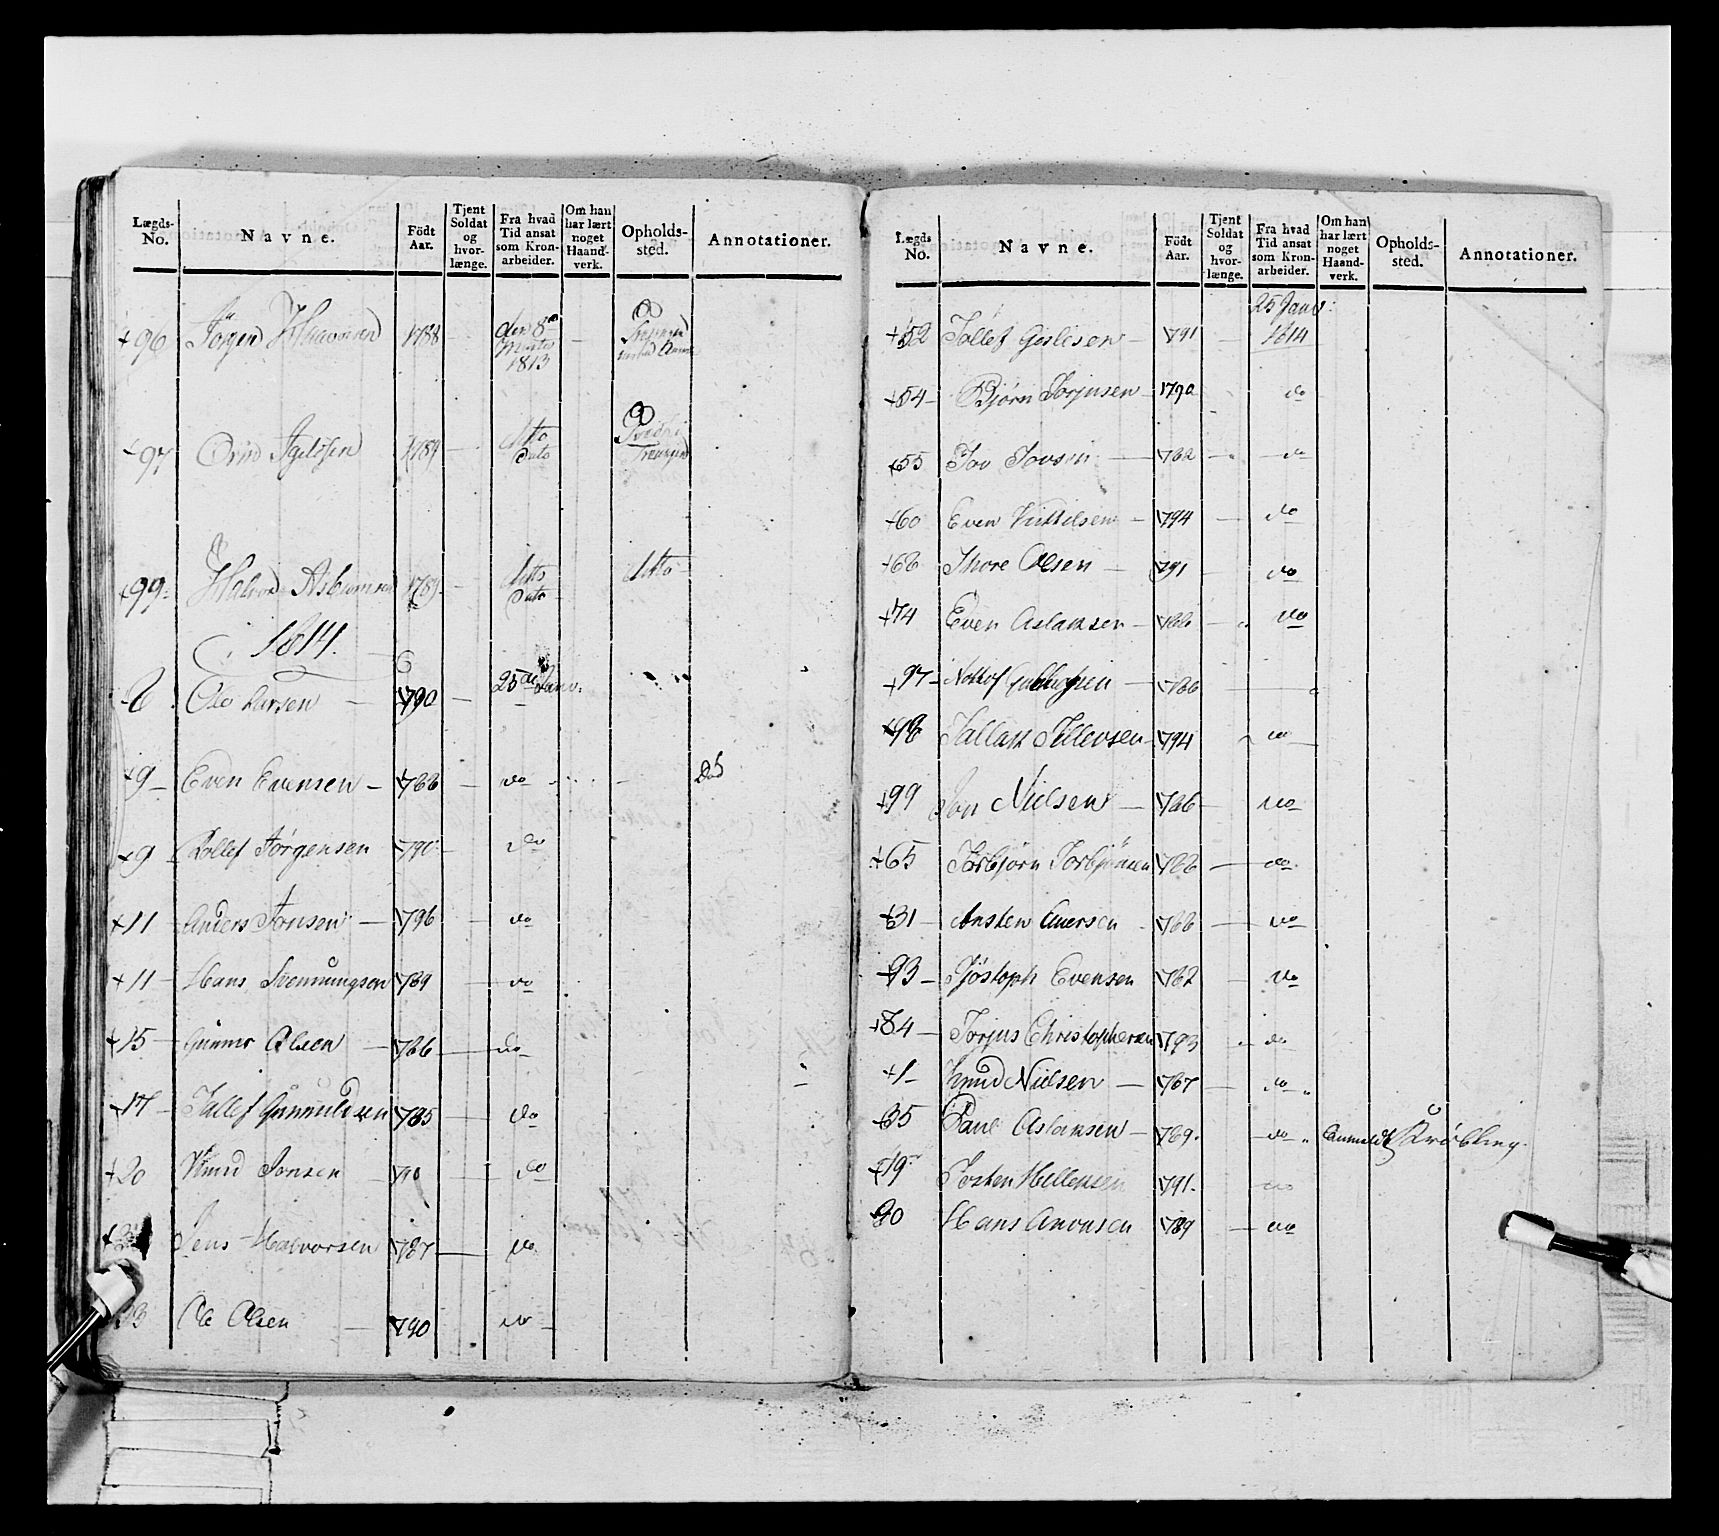 Lægds-No. Navne. Födt Aar. Tjent Soldat og hvor-længe. Fra hvad Tid ansat som Kron-arbeider. Om han har lært noget Haand-verk. Opholds-sted. Annotationer.
+96 Jörgen 1788 den 8de Martz 1813
+97 1789 ditto Dato
+99 Halvor 1789 ditto Dato ditto
1814
6
8 Ole Larsen 1790 25de Janv:
+9 Even Evensen 1788 do Död
+9 Rollef Jörgensen 1790 do
+11 Anders Jonsen 1796 do
+11 Hans Svennungsen 1789 do
+15 Gunner Olsen 1786 do
+17 Tallef Gunnuldsen 1785 do
+20 Knud Jonsen do
Jens Halvorsen 1787 do
23 Ole Olsen 1790 do
Lægds No. Navne. Födt Aar. Tjent Soldat og hvor-længe. Fra hvad Tid ansat som Kron-arbeider. Om han har lært noget Haand-verk. Opholds-sted. Annotationer.
+52 Tallef Gislesen 1791 25 Janv: 1814
+54 Björn Torjusen 1790 do
+55 Jov Jovsen 1782 do
+60 Even Kittilsen 1794 do
+68 Thore Olsen 1791 do
+74 Even Aslaksen 1788 do
+97 1786
+98 Tallak Tellevsen 1794 do
+99 Jon Nielsen 1786 do
+65 Torbjörn Torbjönsen 1788 do
+31 Ansten Aversen 1788 do
+93 Tjöstoph Evensen 1782 do
+84 Torjus Christophersen 1793 do
+1 Knud Nielsen 1787 do
+35 Paul Aslaksen 1789 do Anmeldt Kröbling.
+19 Josten Hellersen 1791 do
90 Hans Anonsen 1789 do